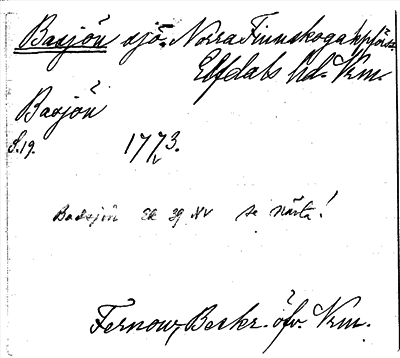 Basjön sjö, Norra Finnskoga kpförs.
Elfdals hd. Vrm.
Basjön
S.19. 1773.
Badsjön Ek 39 NV se nästa!
Fernow, Beskr. öfv. Vrm.